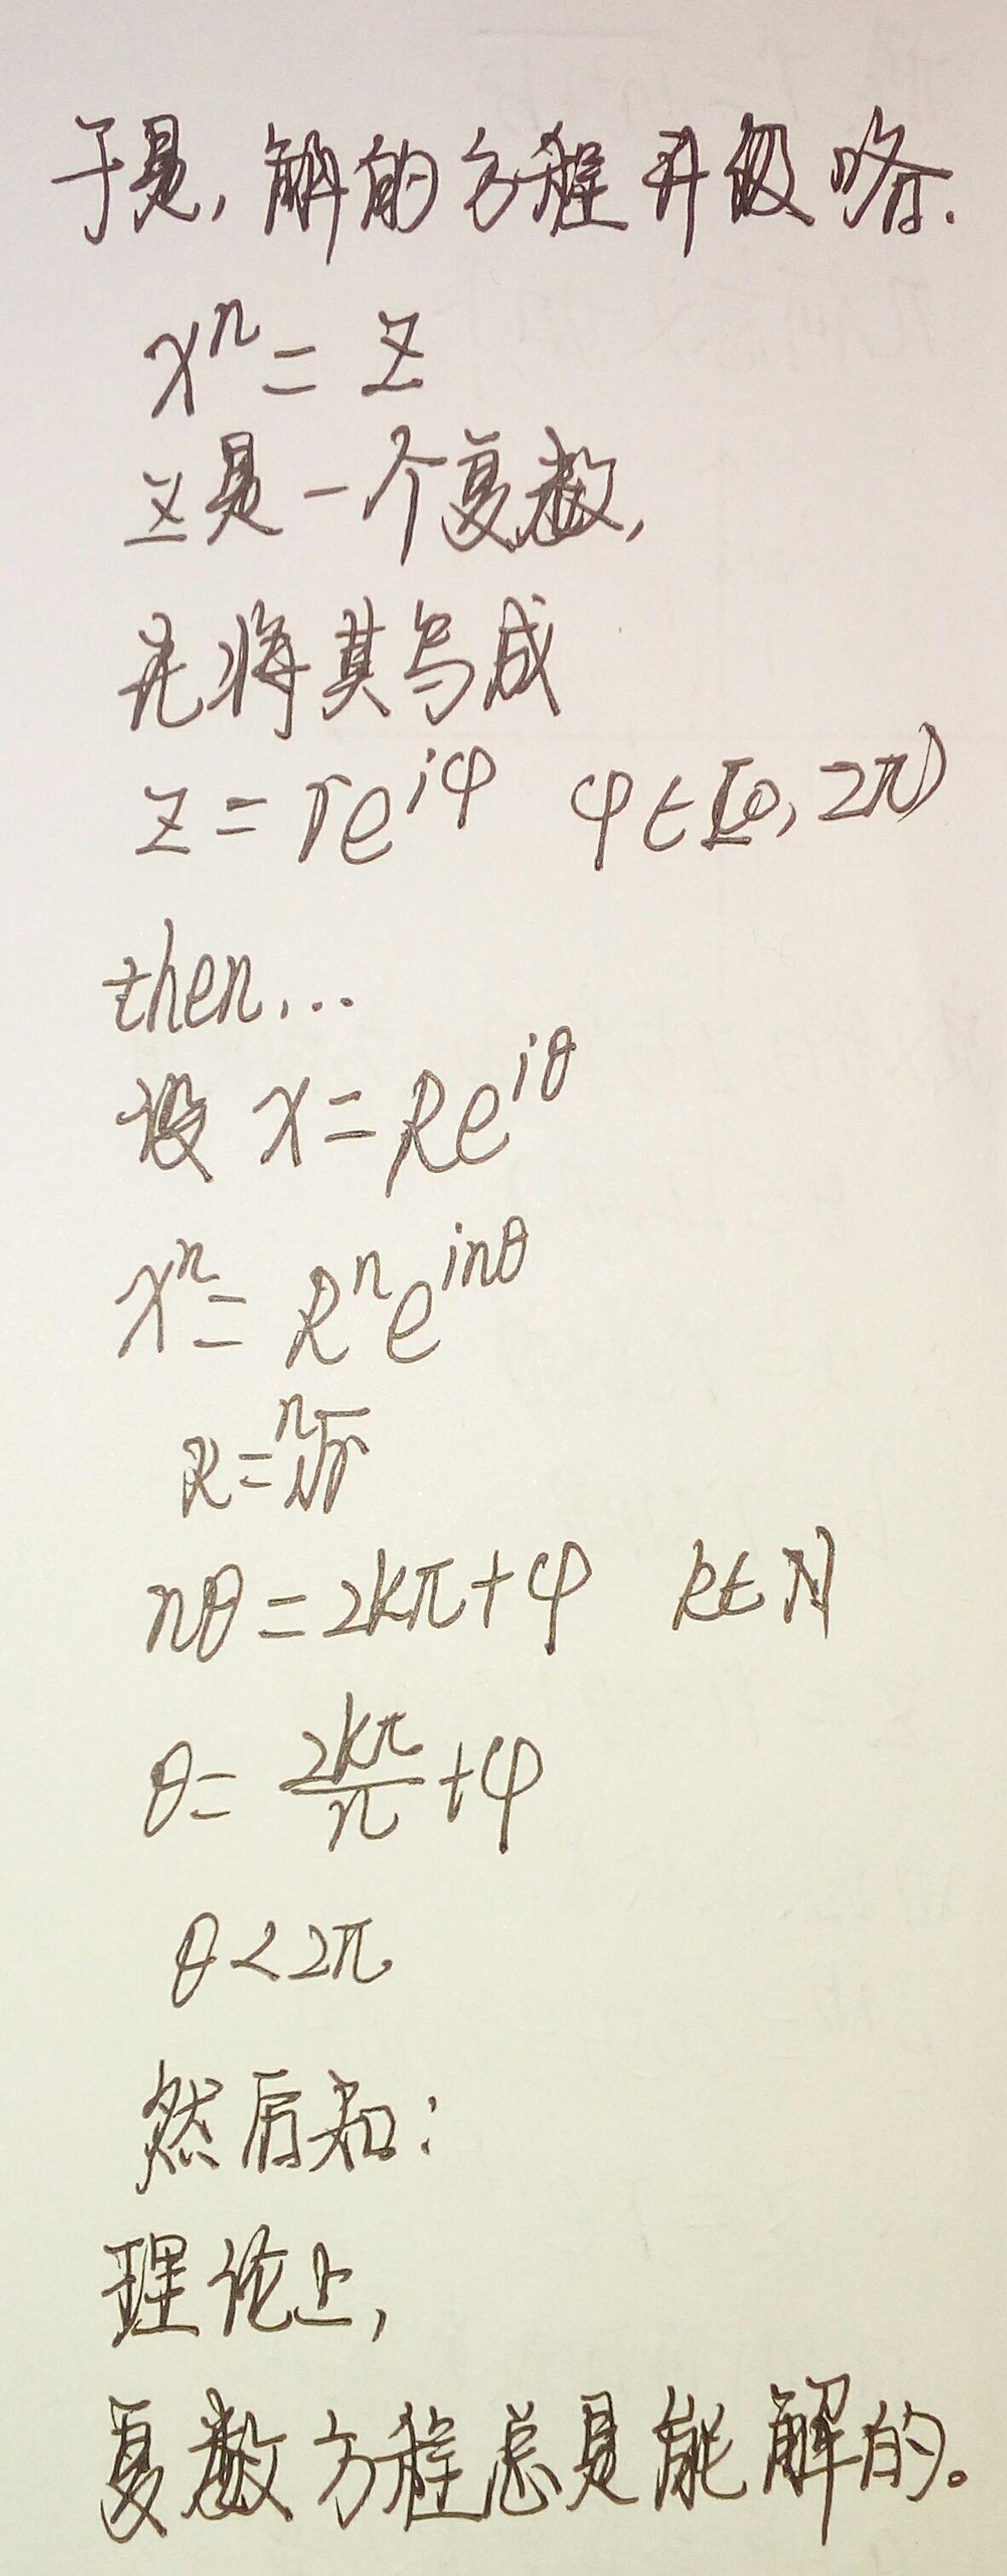 于是，解的方程升级咯.
xⁿ = z
z是一个复数，
先将其写成
z = re^{iφ} φ∈[0, 2π)
then...
设 x = Re^{iθ}
xⁿ = Rⁿe^{inθ}
R = ⁿ√r
nθ = 2kπ + φ k∈N
θ = \frac{2kπ}{n} + φ
θ < 2π
然后知：
理论上，
复数方程总是能解的。